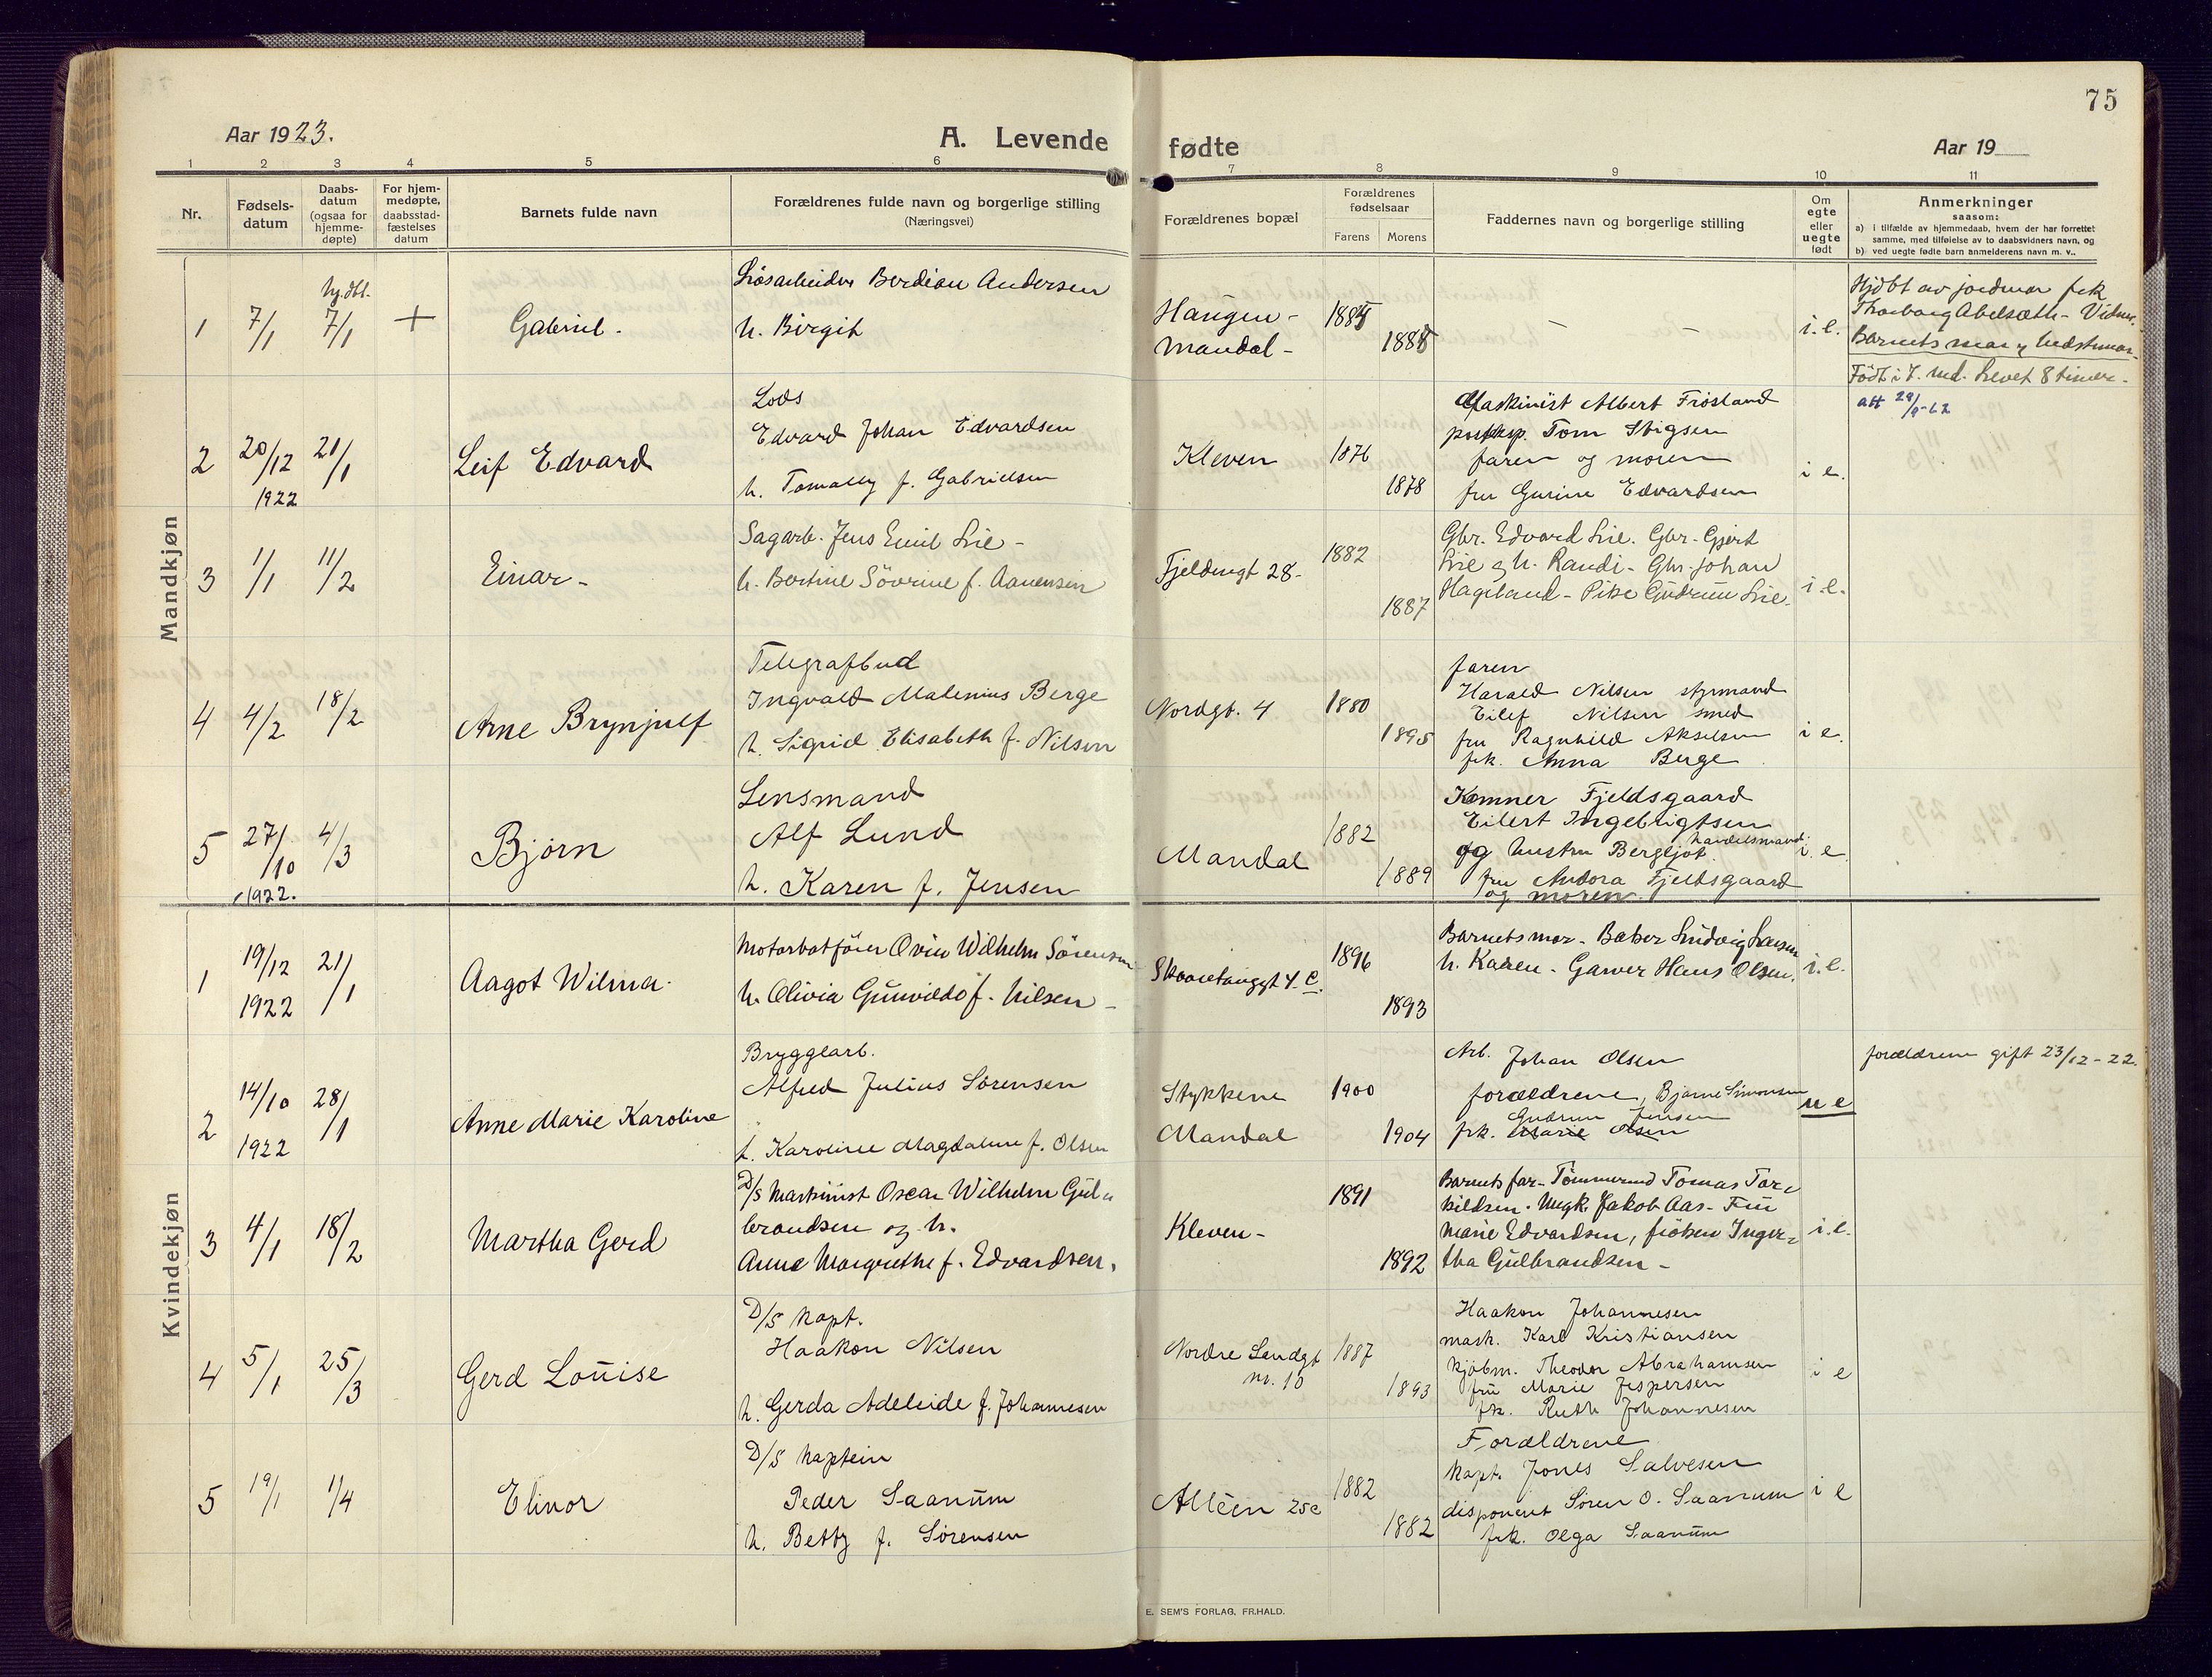 75
Aar 1923.
A. Levende fødte
Aar 19
1 2 3 4 5 6 7 8 9 10 11
Nr.
Fødsels-
datum
Daabs-
datum
(ogsaa for
hjemme-
døpte)
For hjem-
medøpte,
daabsstad-
fæstelses
datum
Barnets fulde navn
Forældrenes fulde navn og borgerlige stilling
(Næringsvei)
Forældrenes bopæl
Forældrenes
fødselsaar
Farens Morens
Faddernes navn og borgerlige stilling
Om
egte
eller
uegte
født
Anmerkninger
saasom:
a) i tilfælde av hjemmedaab, hvem der har forrettet
samme, med tilføielse av to daabsvidners navn, og
b) ved uegte fødte barn anmelderens navn m. v..
Mandkjøn
1
7/1
hj.dbt.
7/1
+
Gabriel.
Berdian Andersen
h. Birgit
Haugen -
Mandal -
1885
1888
— —
i. e.
Hjdbt av jordmor frk
Abelsæth - Vidner.
Barnets mor
Født i 7. md. Levet 8 timer.
2
20/12
1922
21/1
Leif Edvard
Lods
Edvard Johan Edvardsen
h. Tomally f. Gabrielsen
Kleven
1876
1878
Maskinist Albert Frösland
Tom Stigsen
faren og moren
fru Gurine Edvardsen
i e.
3
1/1
11/2
Einar -
Sagarb. Jens Emil Lie -
h. Bertine Sövrine f. Aanensen
Fjeldmgt 28-
1882
1887
Gbr. Edvard Lie. Gbr. Gjert
Lie og h. Randi - Gbr. Johan
Hageland - Pike Gudrun Lie.
i. e.
4
4/2
18/2
Arne Brynjulf
Telegrafbud
Ingvald Malenius Berge
h. Sigrid Elisabeth f. Nilsen
Nordgt. 4
1880
1895
faren
Harald Nilsen styrmand
Eilef Nilsen smed
fru Ragnhild Akselsen
frk. Anna Berge
i e.
5
27/10
1922.
4/3
Bjørn
Lensmand
Alf Lund
h. Karen f. Jensen
Mandal
1882
1889
Kemner Fjeldsgaard
Eilert Ingebrigtsen
handelsmand
og hustru Bergljot
fru Andora Fjeldsgaard
og moren.
i. e
Kvindekjøn
1
19/12
1922
21/1
Aagot Wilma.
Motorbatfører Wilhelm Sörensen
h. Olivia Gunvilda f. Nilsen -
1896
1893
Barnets mor - Baker Ludvig Larsen
h. Karen - Garver Hans Olsen.
i. e.
2
14/10
1922
28/1
Anne Marie Karoline
Bryggearb.
Alfred Julius Sörensen
h. Karoline Magdalene f. Olsen
Stykkene
Mandal
1900
1904
Arb. Johan Olsen
forældrene, Bjarne Simonsen
Gudrun Jensen
frk. Marie Olsen
u e
forældrene gift 23/12 - 22.
3
4/1
18/2
Martha Gerd
D/S Maskinist Oscar Wilhelm Gul-
brandsen og h.
Anne Margrethe f. Edvardsen.
Kleven -
1891
1892
Barnets far - Tömmermd Tomas Tor-
kildsen. Ungk. Jakob Aas - Fru
Marie Edvardsen, fröken Inger-
tha Gulbrandsen -
i. e.
4
5/1
25/3
Gerd Louise
D/S Kapt.
Haakon Nilsen
h. Gerda Adeleide f. Johannesen
Nordre Sandgt
nr. 10
1887
1893
Haakon Johannesen
mask. Karl Kristiansen
kjöbm. Theodor Abrahamsen
fru Marie Jespersen
frk. Ruth Johannesen
i e
5
19/1
1/4
Elinor
D/S Kaptein
Peder Saanum
h. Betty f. Sörensen
Alléen 25c
1882
1882
Forældrene
Kapt. Jones Salvesen
disponent Sören O. Saanum
frk. Olga Saanum
i e
E. SEM'S FORLAG, FR.HALD.